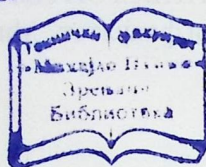 Технички факултет
"Михајло Пупин"
Зрењанин
Библиотека